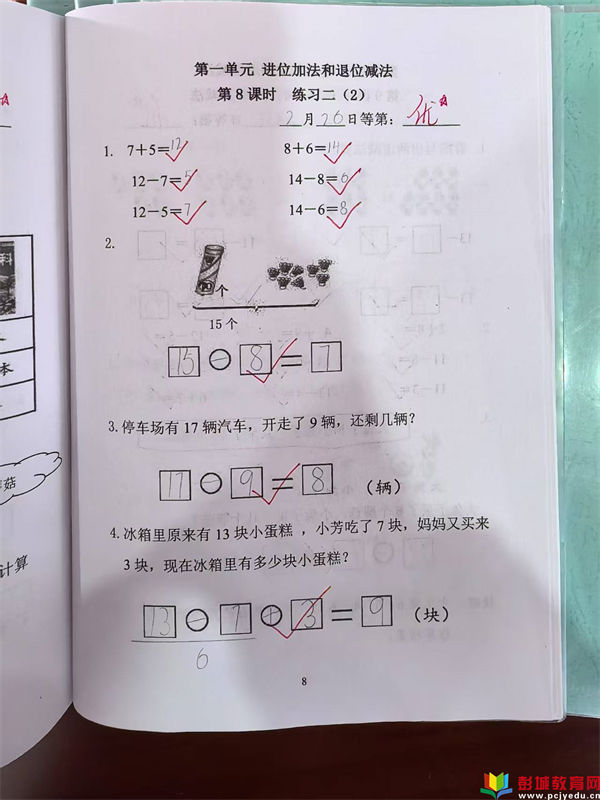 第一单元 进位加法和退位减法
第8课时 练习二（2）
2月26日等第：优
1. 7+5=12 8+6=14
12-7=5 14-8=6
12-5=7 14-6=8
2.
10个
15个
15-8=7
3.停车场有17辆汽车，开走了9辆，还剩几辆？
17-9=8（辆）
4.冰箱里原来有13块小蛋糕，小芳吃了7块，妈妈又买来
3块，现在冰箱里有多少块小蛋糕？
13-7+3=9（块）
6
8
料
本
菇
计算
彭城教育网
www.pcjyedu.cn